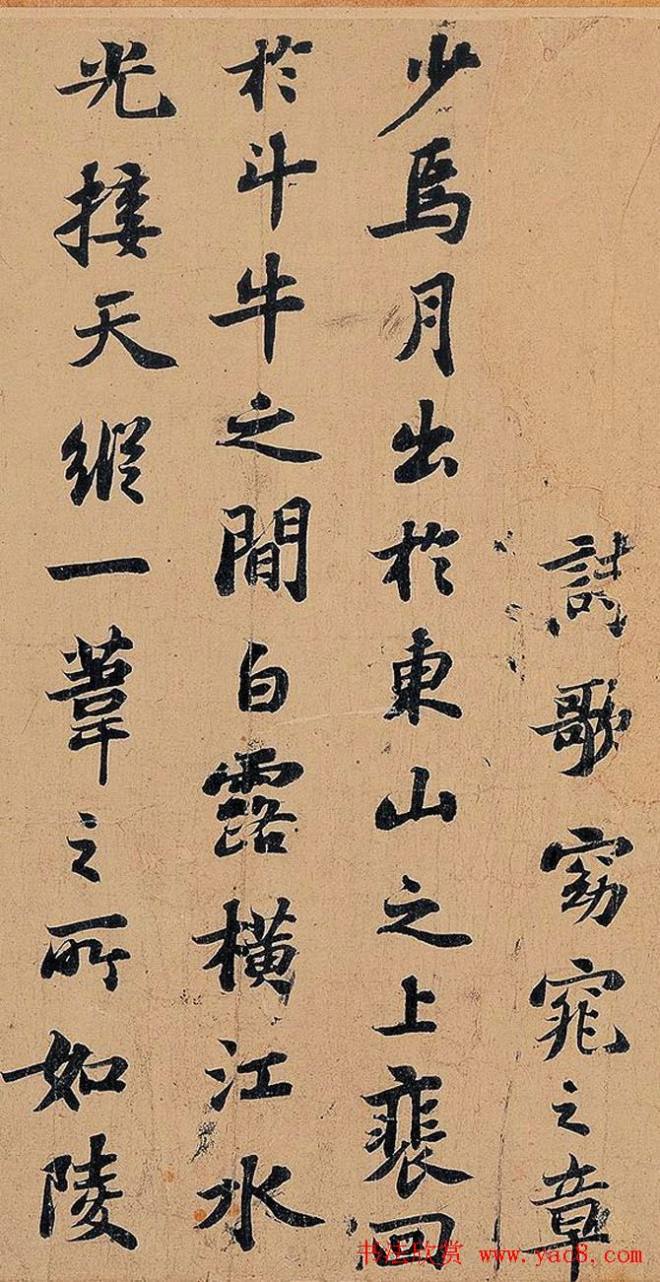 詩歌窈窕之章
少焉月出於東山之上裴回
於斗牛之間白露橫江水
光接天縱一葦之所如陵
书法欣赏 www.yac8.com